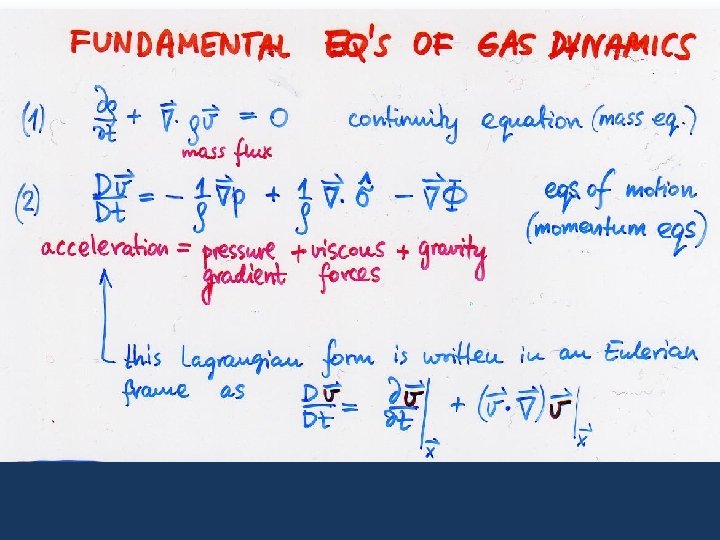 FUNDAMENTAL EQ'S OF GAS DYNAMICS
(1) ∂ρ/∂t + ∇⃗·ρv⃗ = 0 continuity equation (mass eq.)
mass flux
(2) Dv⃗/Dt = - 1/ρ ∇⃗p + 1/ρ ∇⃗·σ̂ - ∇⃗Φ eqs of motion
(momentum eqs)
acceleration = pressure gradient + viscous forces + gravity
this Lagrangian form is written in an Eulerian
frame as Dv⃗/Dt = ∂v⃗/∂t|x⃗ + (v⃗·∇⃗)v⃗|x⃗